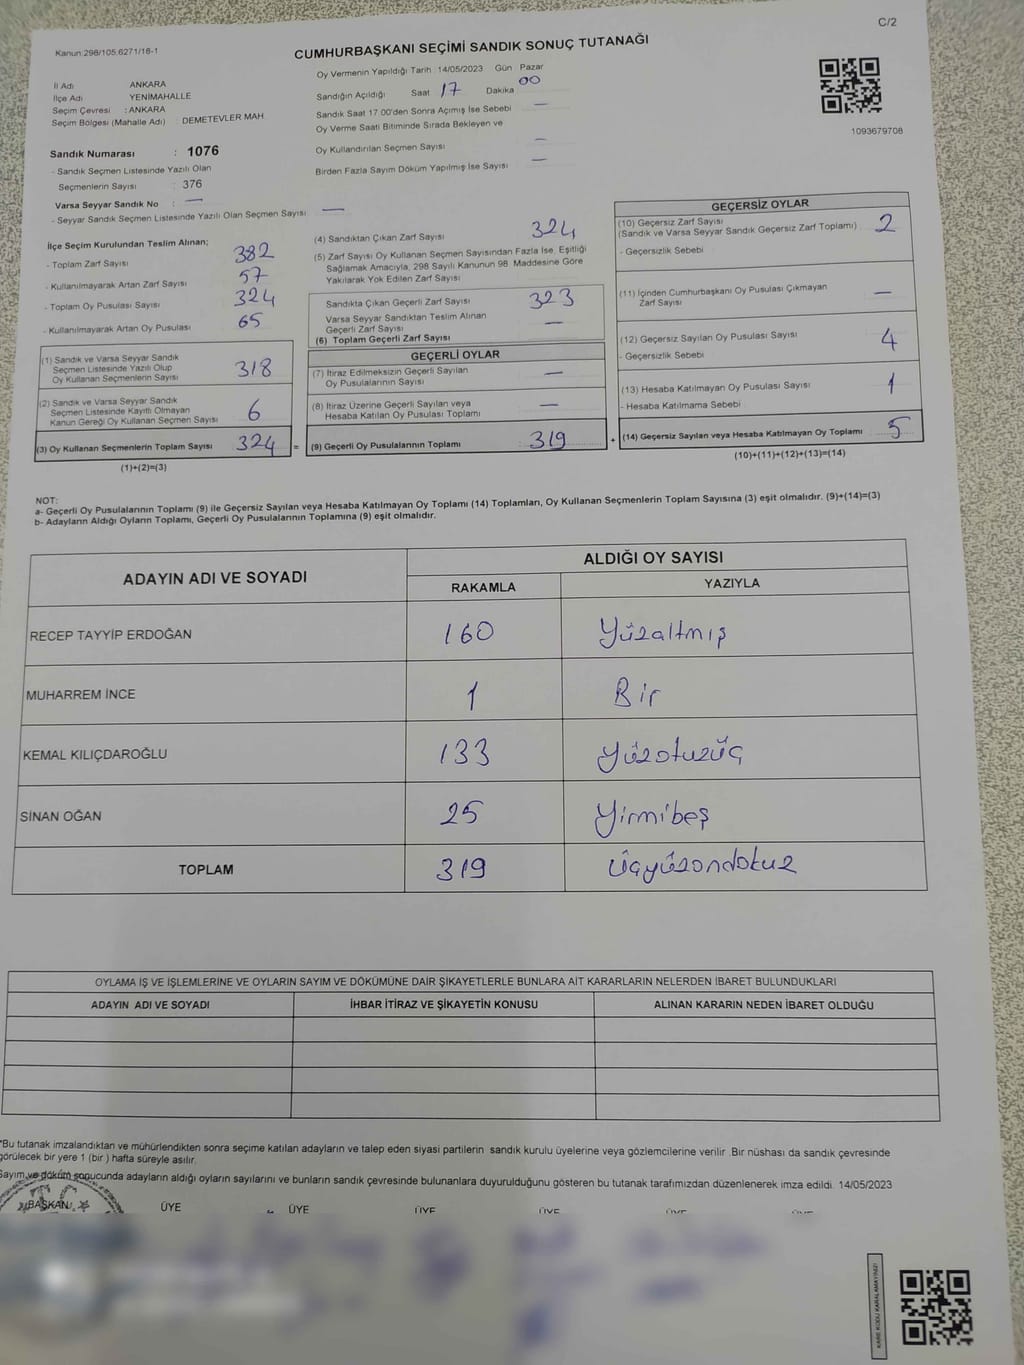 C/2
Kanun:298/105,6271/18-1
CUMHURBAŞKANI SEÇİMİ SANDIK SONUÇ TUTANAĞI
İl Adı ANKARA
İlçe Adı YENİMAHALLE
Seçim Çevresi : ANKARA
Seçim Bölgesi (Mahalle Adı) : DEMETEVLER MAH.
Sandık Numarası : 1076
- Sandık Seçmen Listesinde Yazılı Olan
Seçmenlerin Sayısı : 376
Varsa Seyyar Sandık No : —
- Seyyar Sandık Seçmen Listesinde Yazılı Olan Seçmen Sayısı —
Oy Vermenin Yapıldığı Tarih :14/05/2023 Gün Pazar
Sandığın Açıldığı Saat 17 Dakika 00
Sandık Saat 17.00'den Sonra Açmış İse Sebebi —
Oy Verme Saati Bitiminde Sırada Bekleyen ve
Oy Kullandırılan Seçmen Sayısı —
Birden Fazla Sayım Döküm Yapılmış İse Sayısı —
1093679708
İlçe Seçim Kurulundan Teslim Alınan;
- Toplam Zarf Sayısı 382
- Kullanılmayarak Artan Zarf Sayısı 57
- Toplam Oy Pusulası Sayısı 324
- Kullanılmayarak Artan Oy Pusulası 65
(1) Sandık ve Varsa Seyyar Sandık
Seçmen Listesinde Yazılı Olup
Oy Kullanan Seçmenlerin Sayısı 318
(2) Sandık ve Varsa Seyyar Sandık
Seçmen Listesinde Kayıtlı Olmayan
Kanun Gereği Oy Kullanan Seçmen Sayısı 6
(3) Oy Kullanan Seçmenlerin Toplam Sayısı 324 =
(1)+(2)=(3)
(4) Sandıktan Çıkan Zarf Sayısı 324
(5) Zarf Sayısı Oy Kullanan Seçmen Sayısından Fazla İse, Eşitliği
Sağlamak Amacıyla, 298 Sayılı Kanunun 98. Maddesine Göre
Yakılarak Yok Edilen Zarf Sayısı
Sandıkta Çıkan Geçerli Zarf Sayısı 323
Varsa Seyyar Sandıktan Teslim Alınan
Geçerli Zarf Sayısı —
(6) Toplam Geçerli Zarf Sayısı
GEÇERLİ OYLAR
(7) İtiraz Edilmeksizin Geçerli Sayılan
Oy Pusulalarının Sayısı —
(8) İtiraz Üzerine Geçerli Sayılan veya
Hesaba Katılan Oy Pusulası Toplamı —
(9) Geçerli Oy Pusulalarının Toplamı 319 +
GEÇERSİZ OYLAR
(10) Geçersiz Zarf Sayısı
(Sandık ve Varsa Seyyar Sandık Geçersiz Zarf Toplamı) 2
- Geçersizlik Sebebi
(11) İçinden Cumhurbaşkanı Oy Pusulası Çıkmayan
Zarf Sayısı —
(12) Geçersiz Sayılan Oy Pusulası Sayısı 4
- Geçersizlik Sebebi
(13) Hesaba Katılmayan Oy Pusulası Sayısı 1
- Hesaba Katılmama Sebebi
(14) Geçersiz Sayılan veya Hesaba Katılmayan Oy Toplamı 5
(10)+(11)+(12)+(13)=(14)
NOT:
a- Geçerli Oy Pusulalarının Toplamı (9) ile Geçersiz Sayılan veya Hesaba Katılmayan Oy Toplamı (14) Toplamları, Oy Kullanan Seçmenlerin Toplam Sayısına (3) eşit olmalıdır. (9)+(14)=(3)
b- Adayların Aldığı Oyların Toplamı, Geçerli Oy Pusulalarının Toplamına (9) eşit olmalıdır.
ADAYIN ADI VE SOYADI ALDIĞI OY SAYISI
RAKAMLA YAZIYLA
RECEP TAYYİP ERDOĞAN 160 Yüzaltmış
MUHARREM İNCE 1 Bir
KEMAL KILIÇDAROĞLU 133 Yüzotuzüç
SİNAN OĞAN 25 Yirmibeş
TOPLAM 319 Üçyüzondokuz
OYLAMA İŞ VE İŞLEMLERİNE VE OYLARIN SAYIM VE DÖKÜMÜNE DAİR ŞİKAYETLERLE BUNLARA AİT KARARLARIN NELERDEN İBARET BULUNDUKLARI
ADAYIN ADI VE SOYADI İHBAR İTİRAZ VE ŞİKAYETİN KONUSU ALINAN KARARIN NEDEN İBARET OLDUĞU
*Bu tutanak imzalandıktan ve mühürlendikten sonra seçime katılan adayların ve talep eden siyasi partilerin sandık kurulu üyelerine veya gözlemcilerine verilir .Bir nüshası da sandık çevresinde
görülecek bir yere 1 (bir ) hafta süreyle asılır.
Sayım ve döküm sonucunda adayların aldığı oyların sayılarını ve bunların sandık çevresinde bulunanlara duyurulduğunu gösteren bu tutanak tarafımızdan düzenlenerek imza edildi. 14/05/2023
BAŞKAN ÜYE ÜYE ÜYE ÜYE ÜYE ÜYE
KARE KODU KARALAMAYINIZ!